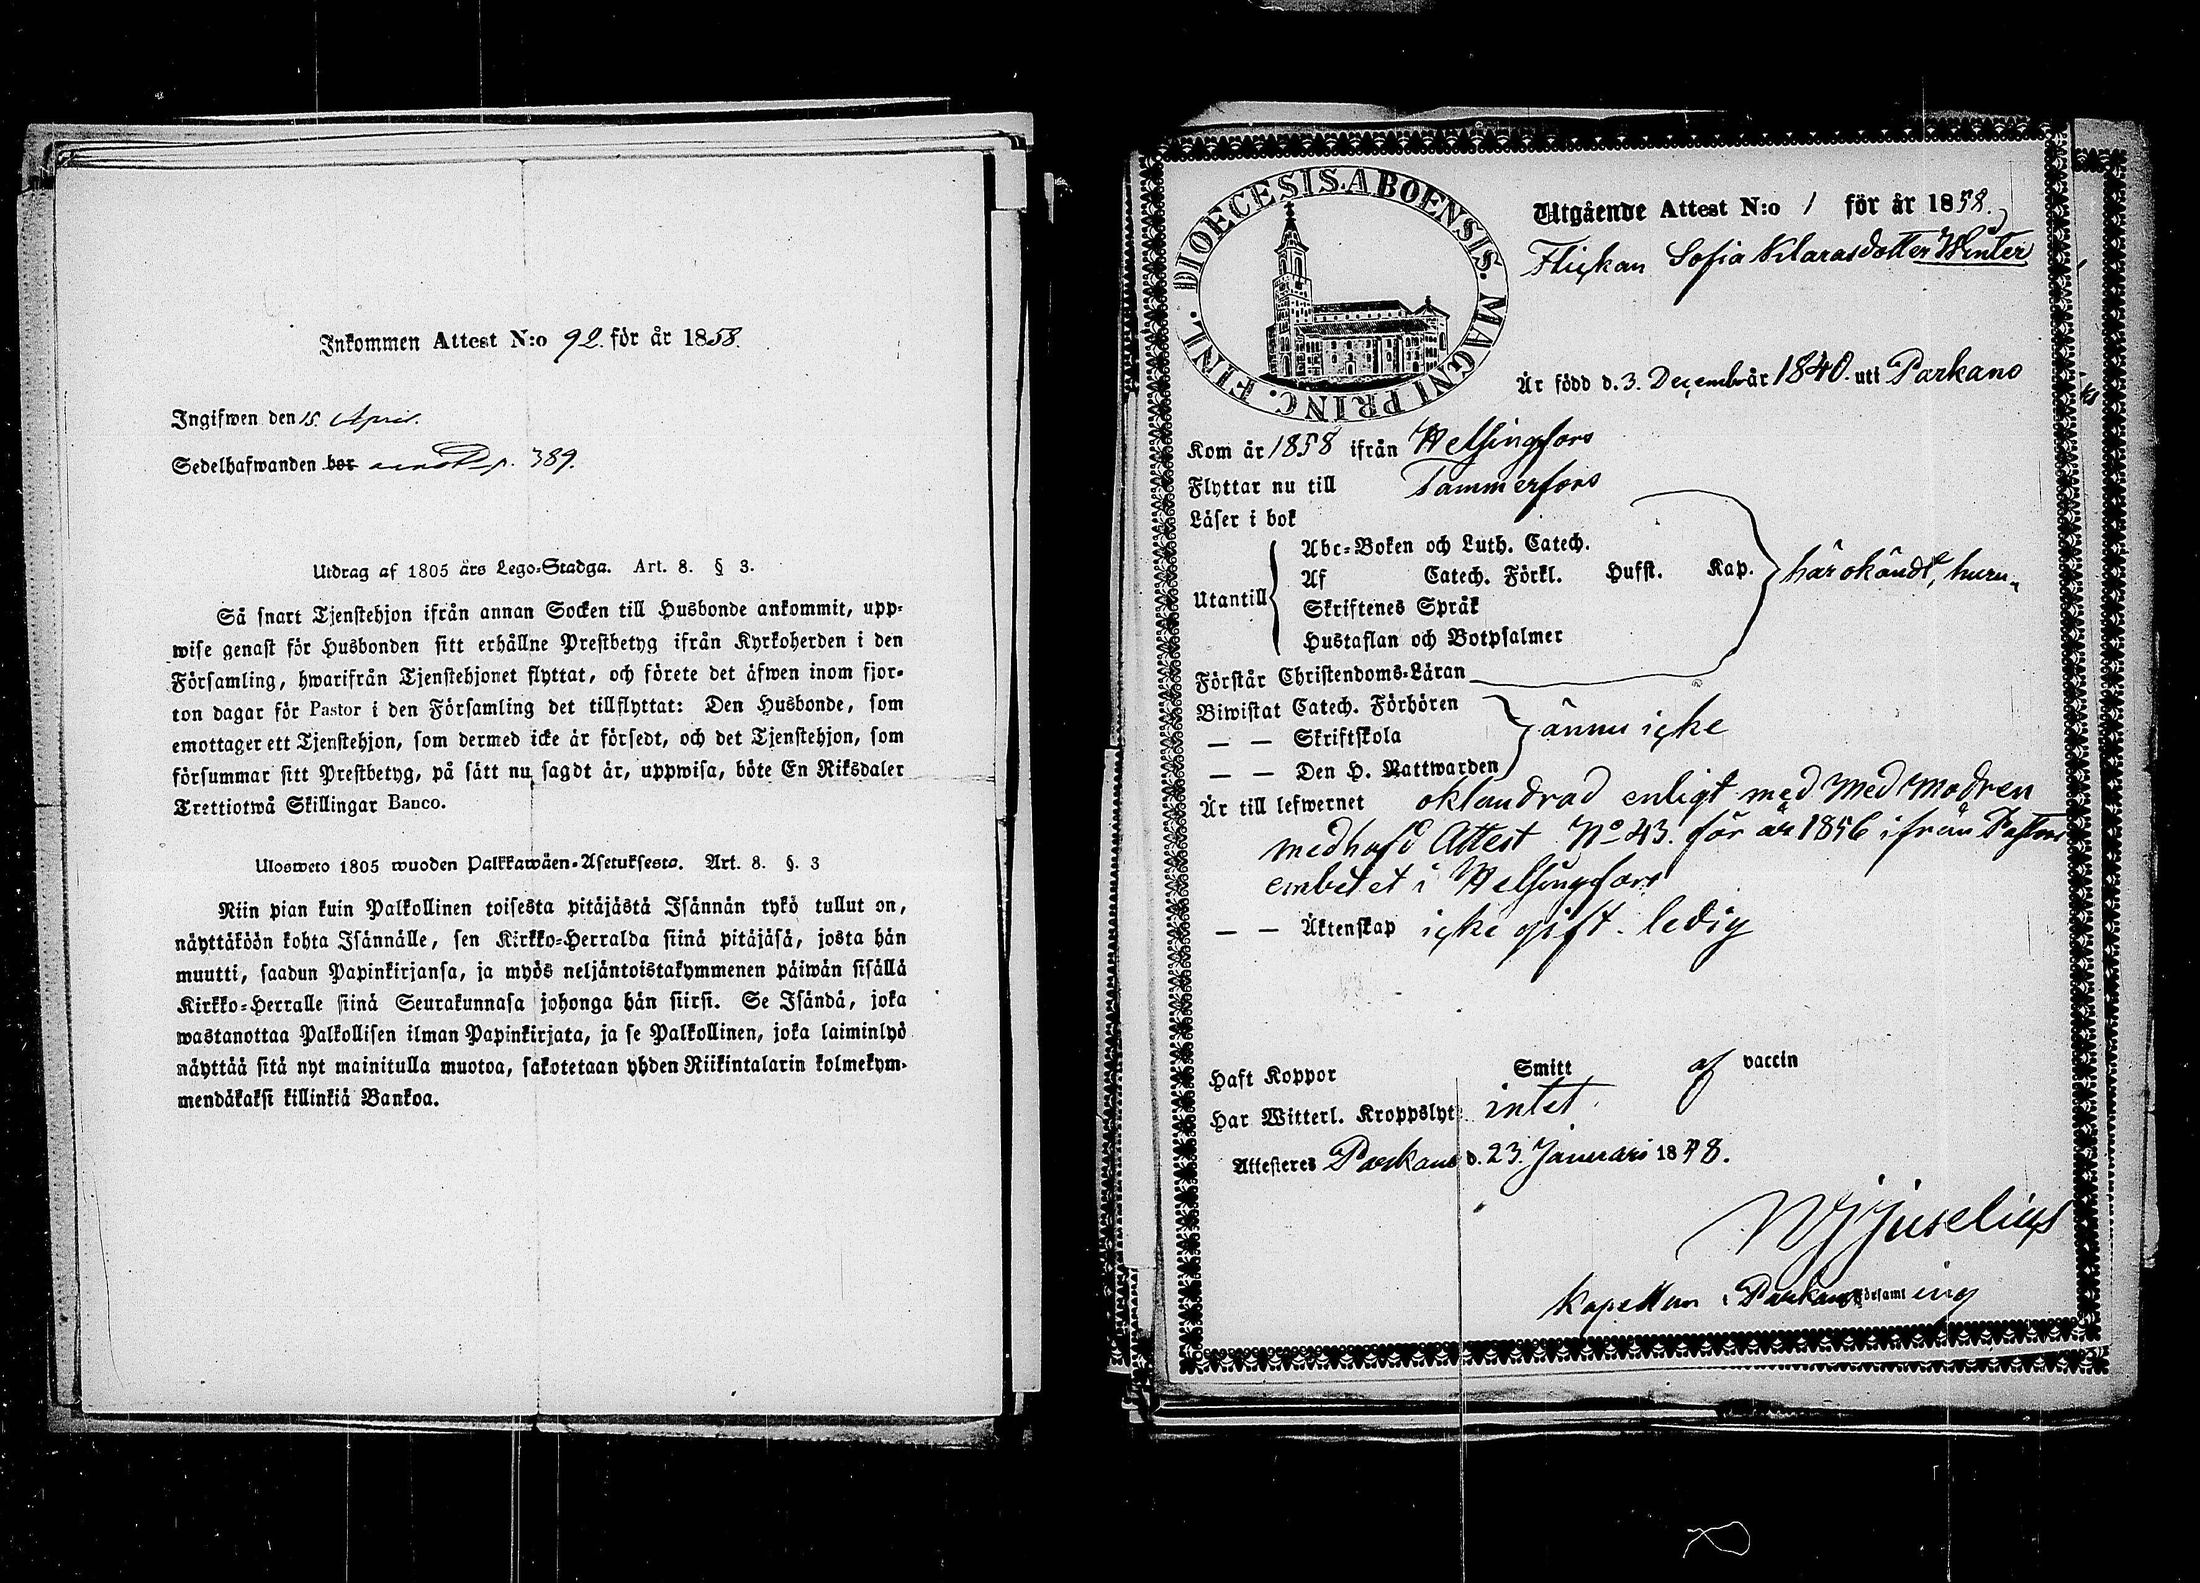 Inkommen Attest N:o 92. för år 1858.
Ingifwen den 15. April.
Sedelhafwanden bor p. 389.
Utdrag af 1805 års Lego-Stadga. Art. 8. § 3.
Så snart Tjenstehjon ifrån annan Socken till Husbonde ankommit, upp-
wise genast för Husbonden sitt erhållne Prestbetyg ifrån Kyrkoherden i den
Församling, hwarifrån Tjenstehjonet flyttat, och förete det äfwen inom fjor-
ton dagar för Pastor i den Församling det tillflyttat: Den Husbonde, som
emottager ett Tjenstehjon, som dermed icke är försedt, och det Tjenstehjon, som
försummar sitt Prestbetyg, på sätt nu sagdt är, uppwisa, böte En Riksdaler
Trettiotwå Skillingar Banco.
Ulosweto 1805 wuoden Palkkawäen-Asetuksesta. Art. 8. §. 3
Niin pian kuin Palkollinen toisesta pitäjästä Isännän tykö tullut on,
näyttäköön kohta Isännälle, sen Kirkko-Herralda siinä pitäjäsä, josta hän
muutti, saadun Papinkirjansa, ja myös neljäntoistakymmenen päiwän sisällä
Kirkko-Herralle siinä Seurakunnasa johonga hän siirsi. Se Isändä, joka
wastanottaa Palkollisen ilman Papinkirjata, ja se Palkollinen, joka laiminlyö
näyttää sitä nyt mainitulla muotoa, sakotetaan yhden Riikintalarin kolmekym-
mendäkaksi killinkiä Bankoa.
DIOECESIS. ABOENSIS. MAGNI PRINC. FINL.
Utgående Attest N:o 1 för år 1858.
Flickan Sofia Klarasdotter Winter
Är född d. 3. December år 1840. uti Parkano
Kom år 1858 ifrån Helsingfors
Flyttar nu till Tammerfors
Läser i bok
Utantill
Abc-Boken och Luth. Catech.
Af Catech. Förkl. Husst. Kap. här okändt, huru
Skriftenes Språk
Hustaflan och Botpsalmer
Förstår Christendoms-Läran
Biwistat Catech. Förhören
— — Skriftskola ännu icke
— — Den H. Nattwarden
Är till lefwernet oklandrad enligt med Med Modren
medhafd Attest No 43. för år 1856 ifrån Pastors
embetet i Helsingfors
— — Äktenskap icke gift. ledig
Haft Koppor Smitt af vaccin
Har Witterl. Kroppslyt intet.
Attesteres Parkano d. 23. Januari 1858.
Juselius
Kapellan i Parkano Församl ing